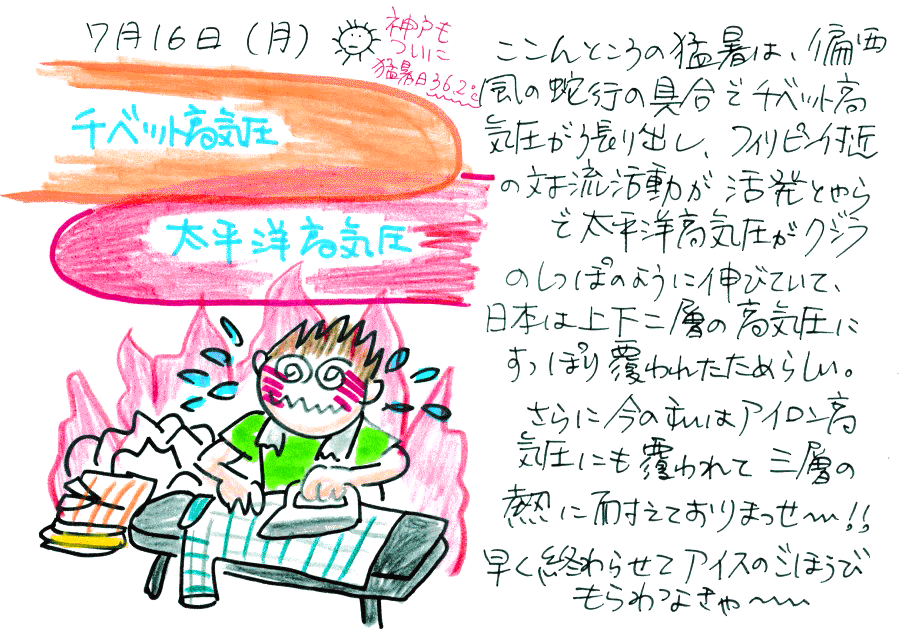 7月16日(月)
神戸も
ついに
猛暑日36.2℃
チベット高気圧
太平洋高気圧
ここんところの猛暑は、偏西
風の蛇行の具合でチベット高
気圧が張り出し、フィリピン付近
の対流活動が活発とやら
で太平洋高気圧がクジラ
のしっぽのように伸びていて、
日本は上下二層の高気圧に
すっぽり覆われたためらしい。
さらに今のすいはアイロン高
気圧にも覆われて三層の
熱に耐えておりまっせ〜!!
早く終わらせてアイスのごほうび
もらわなきゃ〜